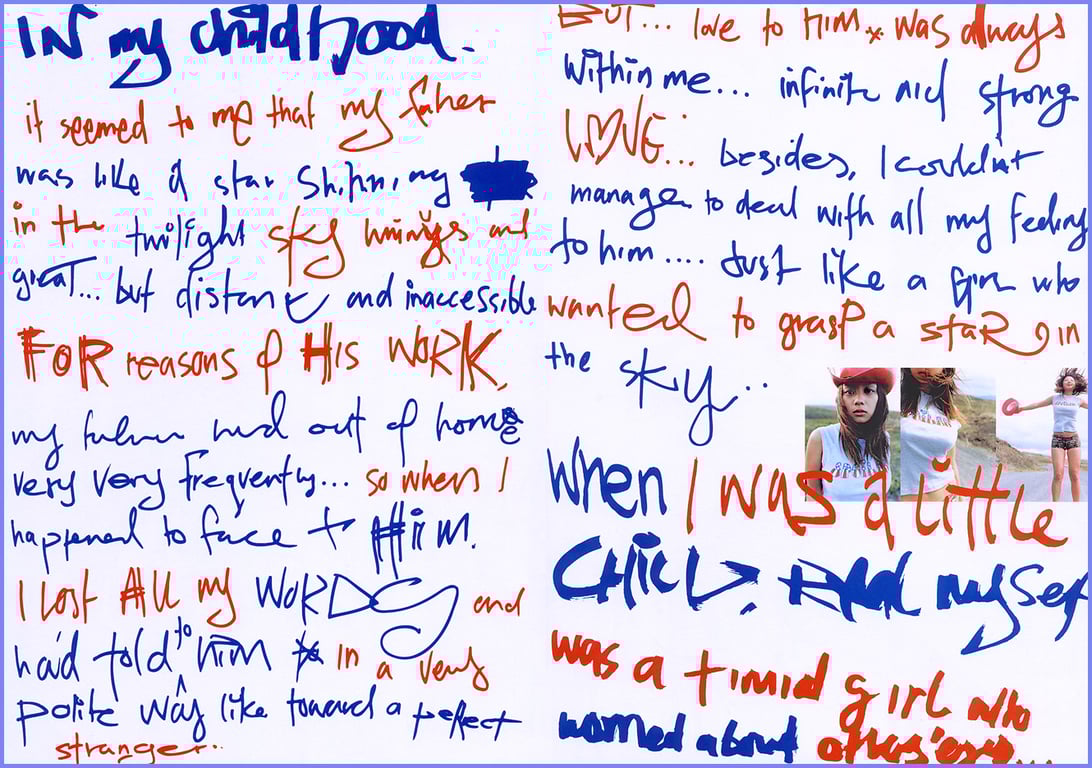 IN my childhood.
it seemed to me that my faher
was like a star shinning
in the twilight sky and
great... but distant and inaccessible
FOR reasons of His WORK,
my father had out of home
very very frequently... so when I
happened to face to Him.
I lost All my WORDS and
had told to him in a very
polite way like toward a perfect
stranger..
BUT... love to Him was always
within me... infinite and strong
LOVE... besides, I couldn't
manage to deal with all my feeling
to him.... Just like a girl who
wanted to grasp a staR in
the sky...
when I was a little
CHILD, myself
was a timid girl who
worried about